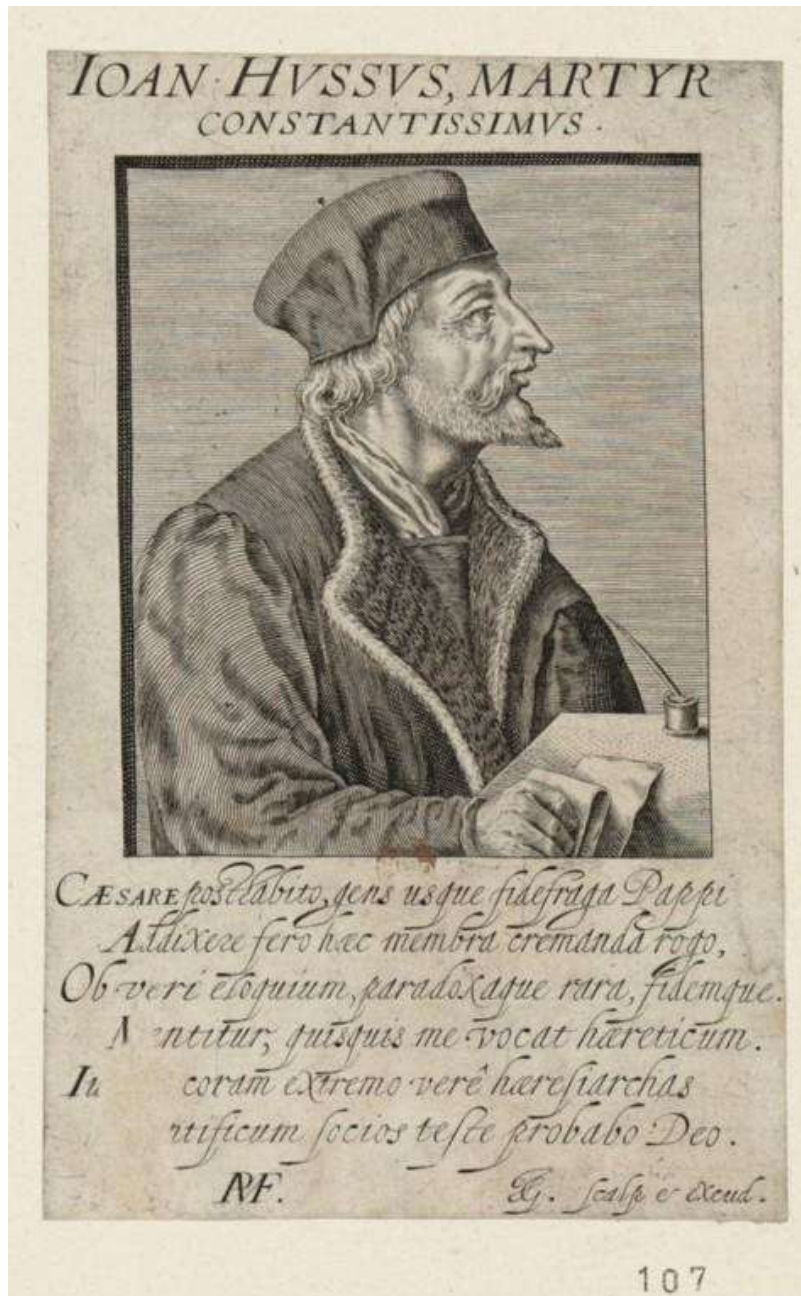 IOAN· HVSSVS, MARTYR
CONSTANTISSIMVS.
CÆSARE posthabito, gens usque fidefraga Pappi
Addixere fero hæc membra cremanda rogo,
Ob veri eloquium, paradoxaque rara, fidemque.
ntitur, quisquis me vocat hæreticum.
Iu coram extremo verê hæresiarchas
tificum socios teste probabo Deo.
scalp e excud.
107